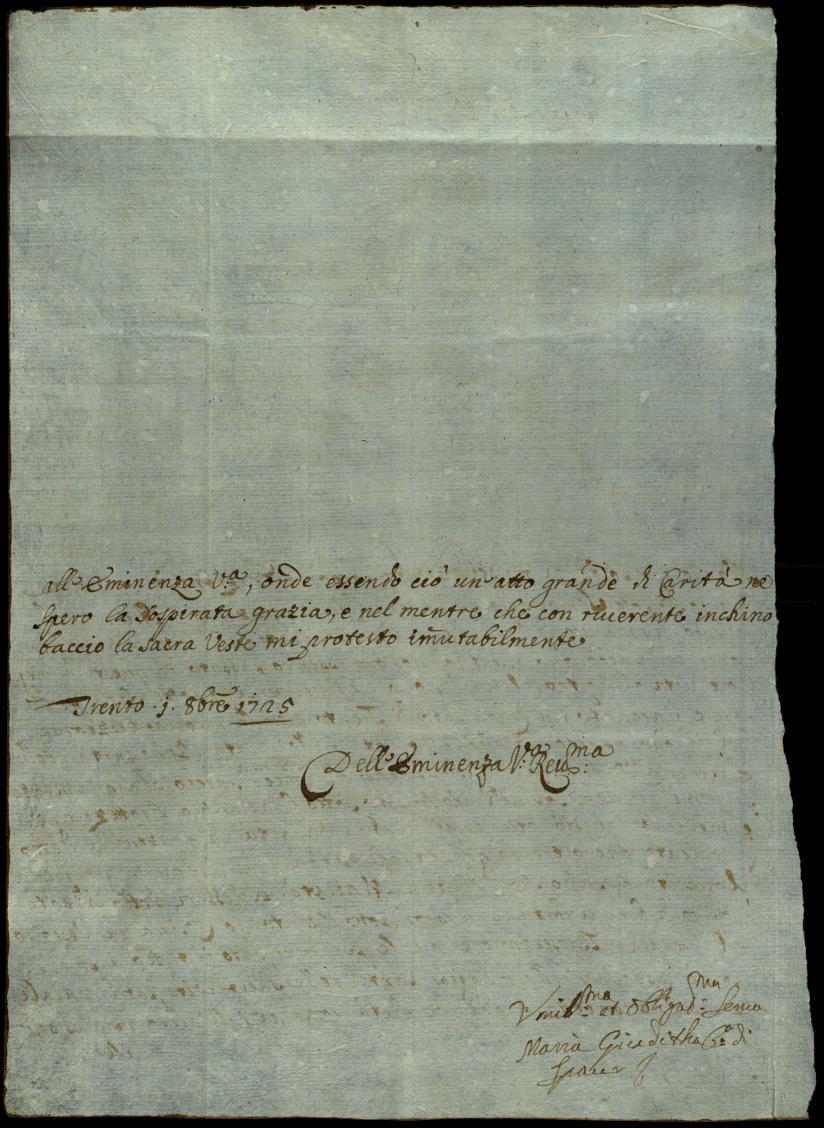 all'Eminenza V.a, onde essendo ciò un'atto grande di Carità ne
spero la sospirata grazia, e nel mentre che con riuerente inchino
baccio la sacra Veste mi protesto im̄utabilmente
Trento .j. 8bre 1725
Dell'Eminenza V.a Reu.ma
Vmil.ma et obligad.ma Serua
Maria Giuditha C.a di
Spaur